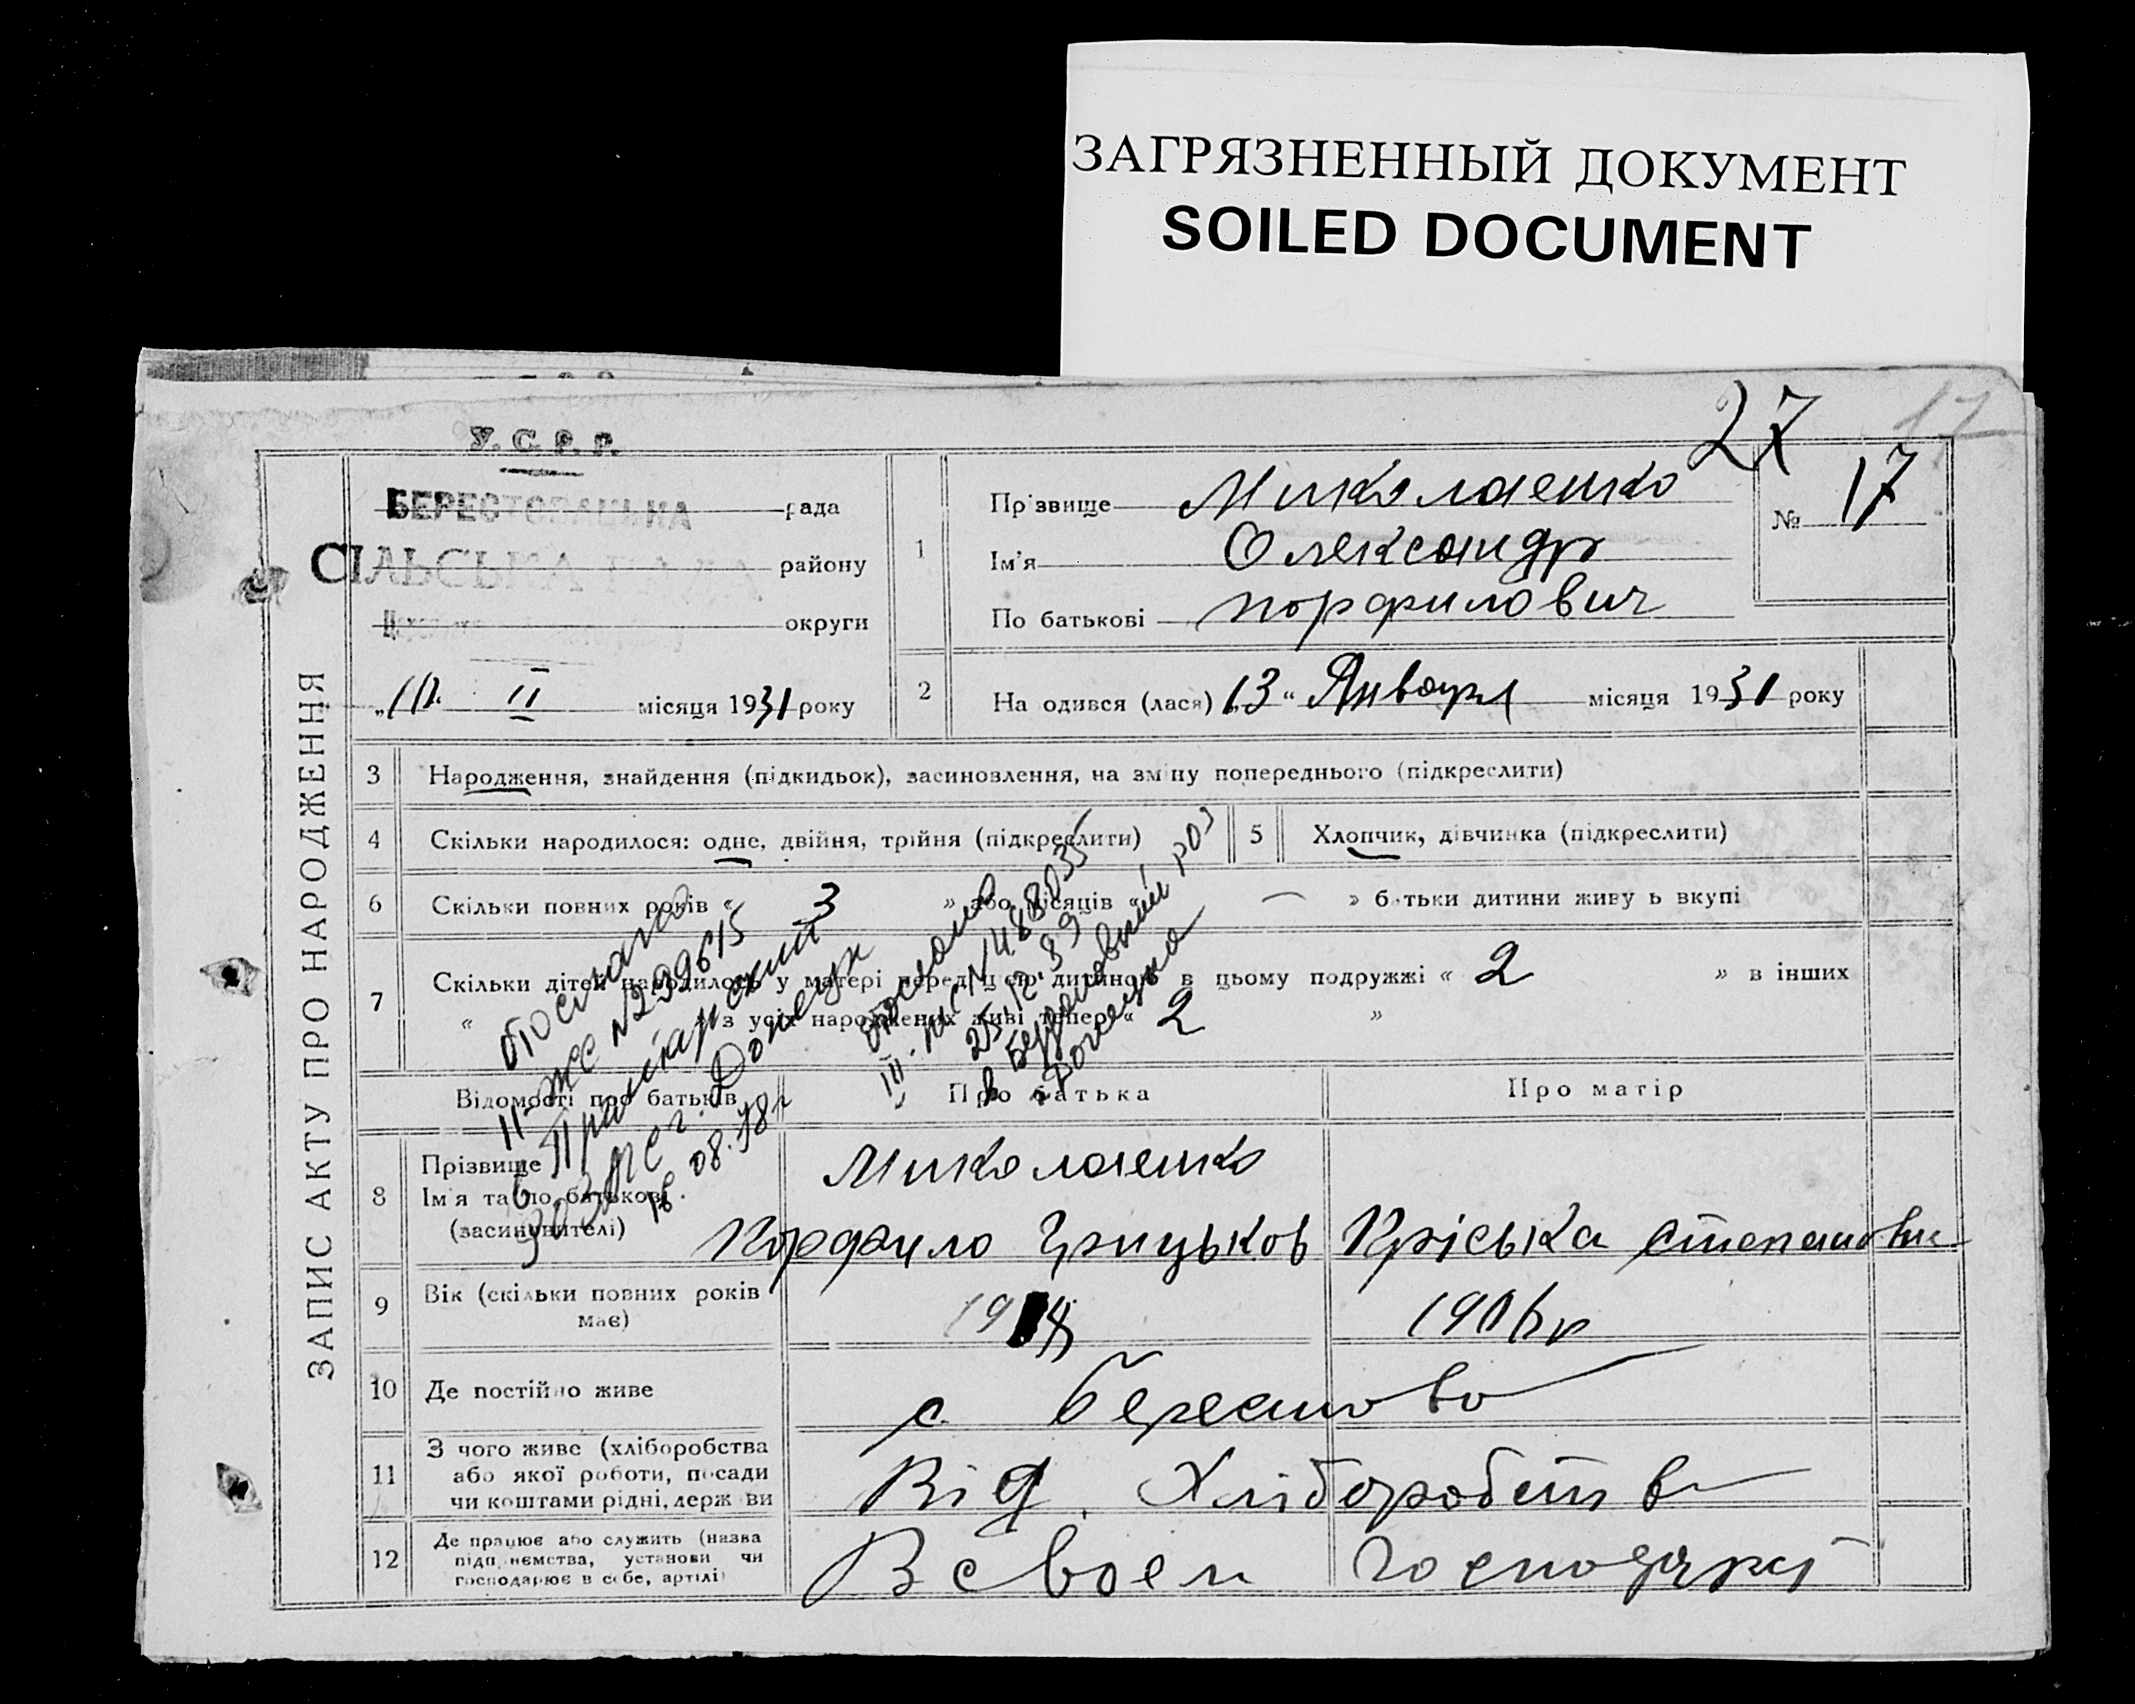 ЗАГРЯЗНЕННЫЙ ДОКУМЕНТ
SOILED DOCUMENT
27 17
У.С.Р.Р.
БЕРЕСТОВАЦЬКА рада
СІЛЬСЬКА РАДА району
округи
„10“ II місяця 1931 року
ЗАПИС АКТУ ПРО НАРОДЖЕННЯ
1 Прізвище Миколаенко
Ім'я Олександр
По батькові порфилович
№ 17
2 На одився (лася) „13“ Января місяця 1931 року
3 Народження, знайдення (підкидьок), засиновлення, на зміну попереднього (підкреслити)
4 Скільки народилося: одне, двійня, трійня (підкреслити)
5 Хлопчик, дівчинка (підкреслити)
6 Скільки повних років « 3 » або місяців « — » батьки дитини живу ь вкупі
7 Скільки дітей народилось у матері перед цією дитиною в цьому подружжі « 2 » в інших
« » з усіх народжених живі тепер « 2 »
отослано
II-ЖС №299615
в Пролетарский
ЗАГС г. Донецк
18.08.78г
отослано
25.12.89
Відомості про батьків
Про батька
Про матір
8 Прізвище
Ім'я та по батькові
(засиновителі)
Миколаенко
Порфило Грицьков Пріська степановна
9 Вік (скільки повних років
має)
1906р
10 Де постійно живе
с. берестово
11 З чого живе (хліборобства
або якої роботи, посади
чи коштами рідні, держ ви
Від. Хліборобств
12 Де працює або служить (назва
підп иємства, установи чи
господарює в себе, артілі)
В своем господаркі